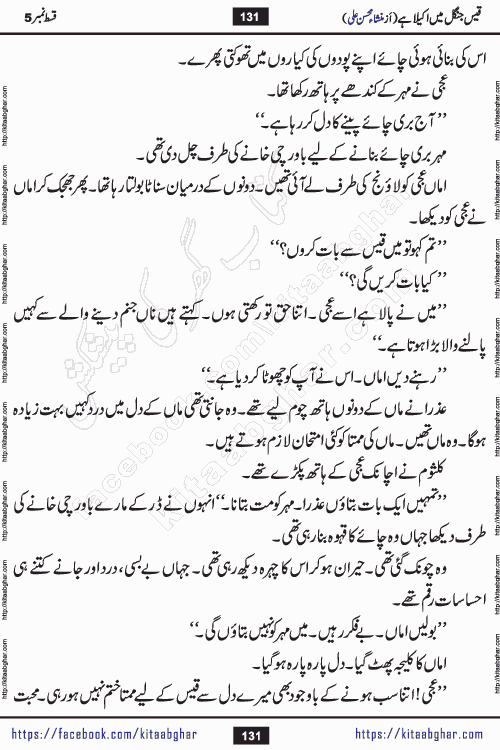 قیس جنگل میں اکیلا ہے (از منشاء محسن علی) 131 قسط نمبر 5
اس کی بنائی ہوئی چائے اپنے پودوں کی کیاروں میں تھوکتی پھرے۔
عجی نے مہر کے کندھے پر ہاتھ رکھا تھا۔
’’آج بری چائے پینے کا دل کر رہا ہے۔‘‘
مہر بری چائے بنانے کے لیے باورچی خانے کی طرف چل دی تھی۔
اماں عجی کو لاؤنج کی طرف لے آئی تھیں۔ دونوں کے درمیان سناٹا بولتا رہا تھا۔ پھر جھجک کر اماں
نے عجی کو دیکھا۔
’’تم کہو تو میں قیس سے بات کروں؟‘‘
’’کیا بات کریں گی؟‘‘
’’میں نے پالا ہے اسے عجی۔ اتنا حق تو رکھتی ہوں۔ کہتے ہیں ناں جنم دینے والے سے کہیں
پالنے والا بڑا ہوتا ہے۔‘‘
’’رہنے دیں اماں۔ اس نے آپ کو چھوٹا کر دیا ہے۔‘‘
عذرا نے ماں کے دونوں ہاتھ چوم لیے تھے۔ وہ جانتی تھی ماں کے دل میں درد کہیں بہت زیادہ
ہوگا۔ وہ ماں تھیں۔ ماں کی ممتا کو کئی امتحان لازم ہوتے ہیں۔
کلثوم نے اچانک عجی کے ہاتھ پکڑے تھے۔
’’تمہیں ایک بات بتاؤں عذرا۔ مہر کو مت بتانا۔‘‘ انہوں نے ڈر کے مارے باورچی خانے کی
طرف دیکھا جہاں وہ چائے کا قہوہ بنا رہی تھی۔
وہ چونک گئی تھی۔ حیران ہو کر اس کا چہرہ دیکھ رہی تھی۔ جہاں بے بسی، درد اور جانے کتنے ہی
احساسات رقم تھے۔
’’بولیں اماں۔ بے فکر رہیں۔ میں مہر کو نہیں بتاؤں گی۔‘‘
اماں کا کلیجہ پھٹ گیا۔ دل پارہ پارہ ہو گیا۔
’’عجی! اتنا سب ہونے کے باوجود بھی میرے دل سے قیس کے لیے ممتا ختم نہیں ہو رہی۔ محبت
https://facebook.com/kitaabghar 131 https://kitaabghar.com
http://kitaabghar.com